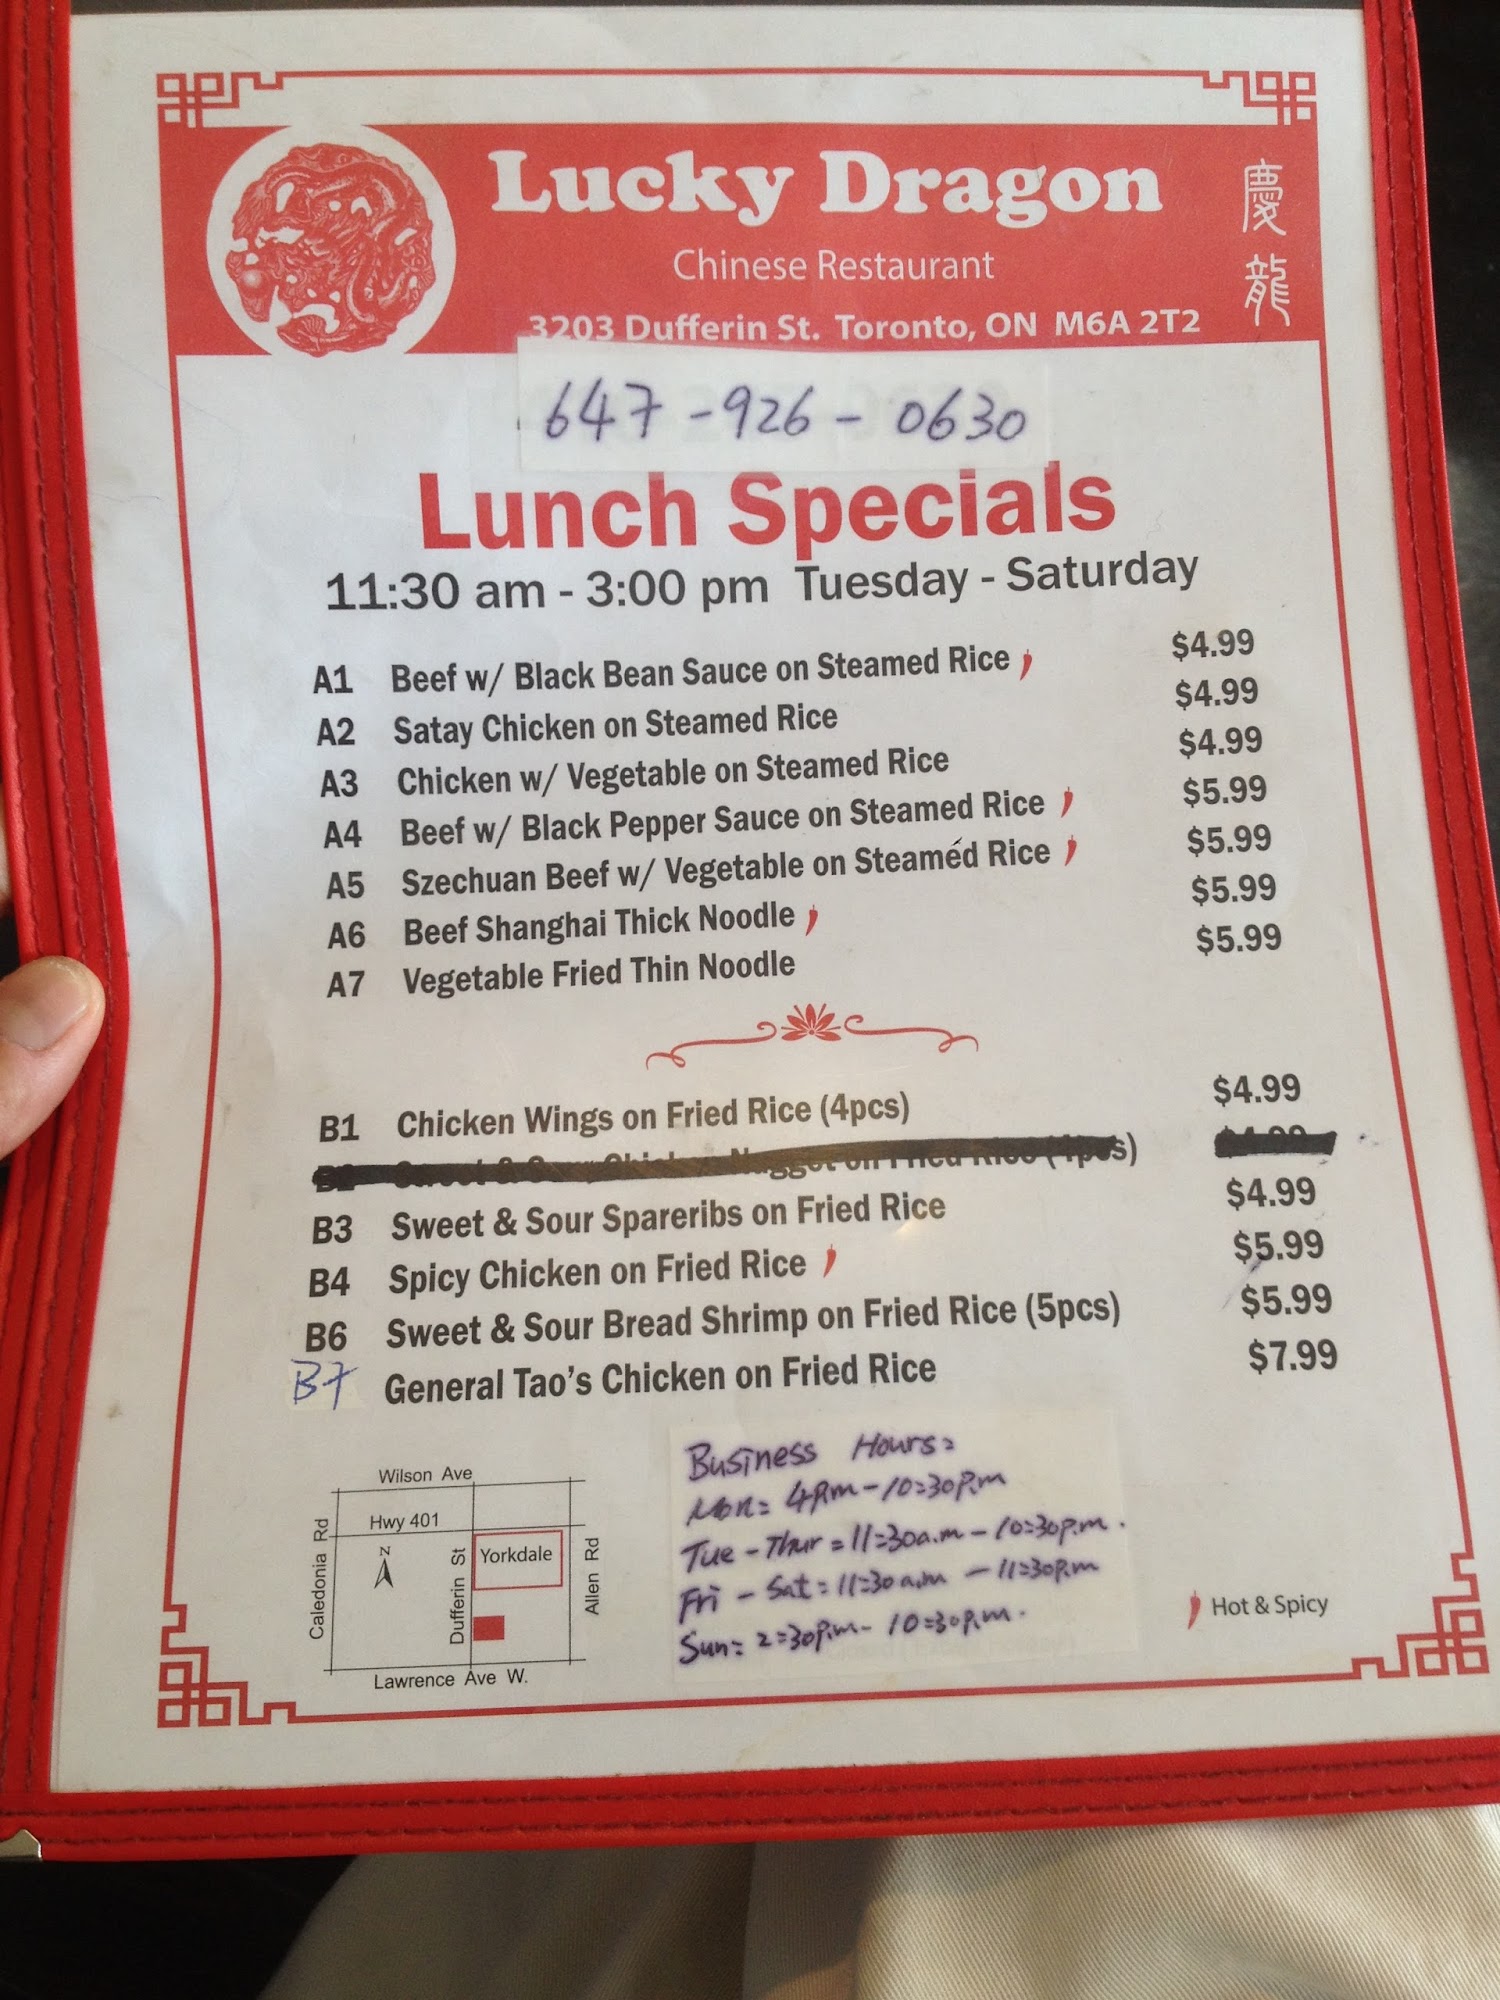 Lucky Dragon
慶龍
Chinese Restaurant
3203 Dufferin St. Toronto, ON M6A 2T2
647-926-0630
Lunch Specials
11:30 am - 3:00 pm Tuesday - Saturday
A1 Beef w/ Black Bean Sauce on Steamed Rice $4.99
A2 Satay Chicken on Steamed Rice $4.99
A3 Chicken w/ Vegetable on Steamed Rice $4.99
A4 Beef w/ Black Pepper Sauce on Steamed Rice $5.99
A5 Szechuan Beef w/ Vegetable on Steamed Rice $5.99
A6 Beef Shanghai Thick Noodle $5.99
A7 Vegetable Fried Thin Noodle $5.99
B1 Chicken Wings on Fried Rice (4pcs) $4.99
B2 Sweet & Sour Chicken Nugget on Fried Rice (4pcs) $4.99
B3 Sweet & Sour Spareribs on Fried Rice $4.99
B4 Spicy Chicken on Fried Rice $5.99
B6 Sweet & Sour Bread Shrimp on Fried Rice (5pcs) $5.99
B7 General Tao's Chicken on Fried Rice $7.99
Wilson Ave
Hwy 401
Caledonia Rd
N
Dufferin St
Yorkdale
Allen Rd
Lawrence Ave W.
Business Hours:
Mon: 4P.m-10:30P.m
Tue-Thur:11:30a.m-10:30p.m.
Fri-Sat:11:30a.m-11:30p.m
Sun: 2:30P.m-10:30p.m.
Hot & Spicy